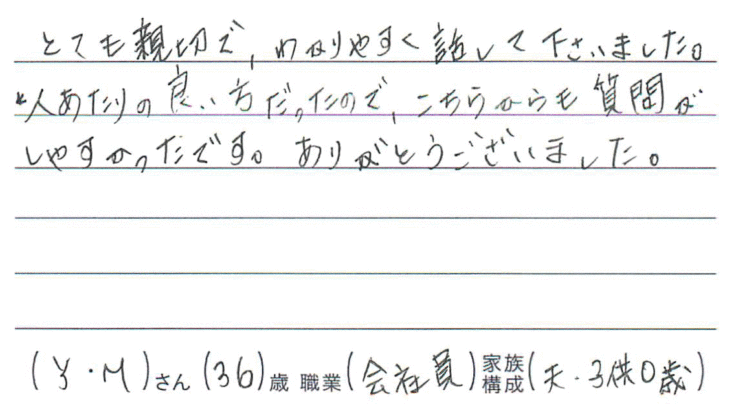 とても親切で、わかりやすく話して下さいました。
人あたりの良い方だったので、こちらからも質問が
しやすかったです。ありがとうございました。
(Y・M)さん (36)歳 職業(会社員)家族構成(夫・子供0歳)